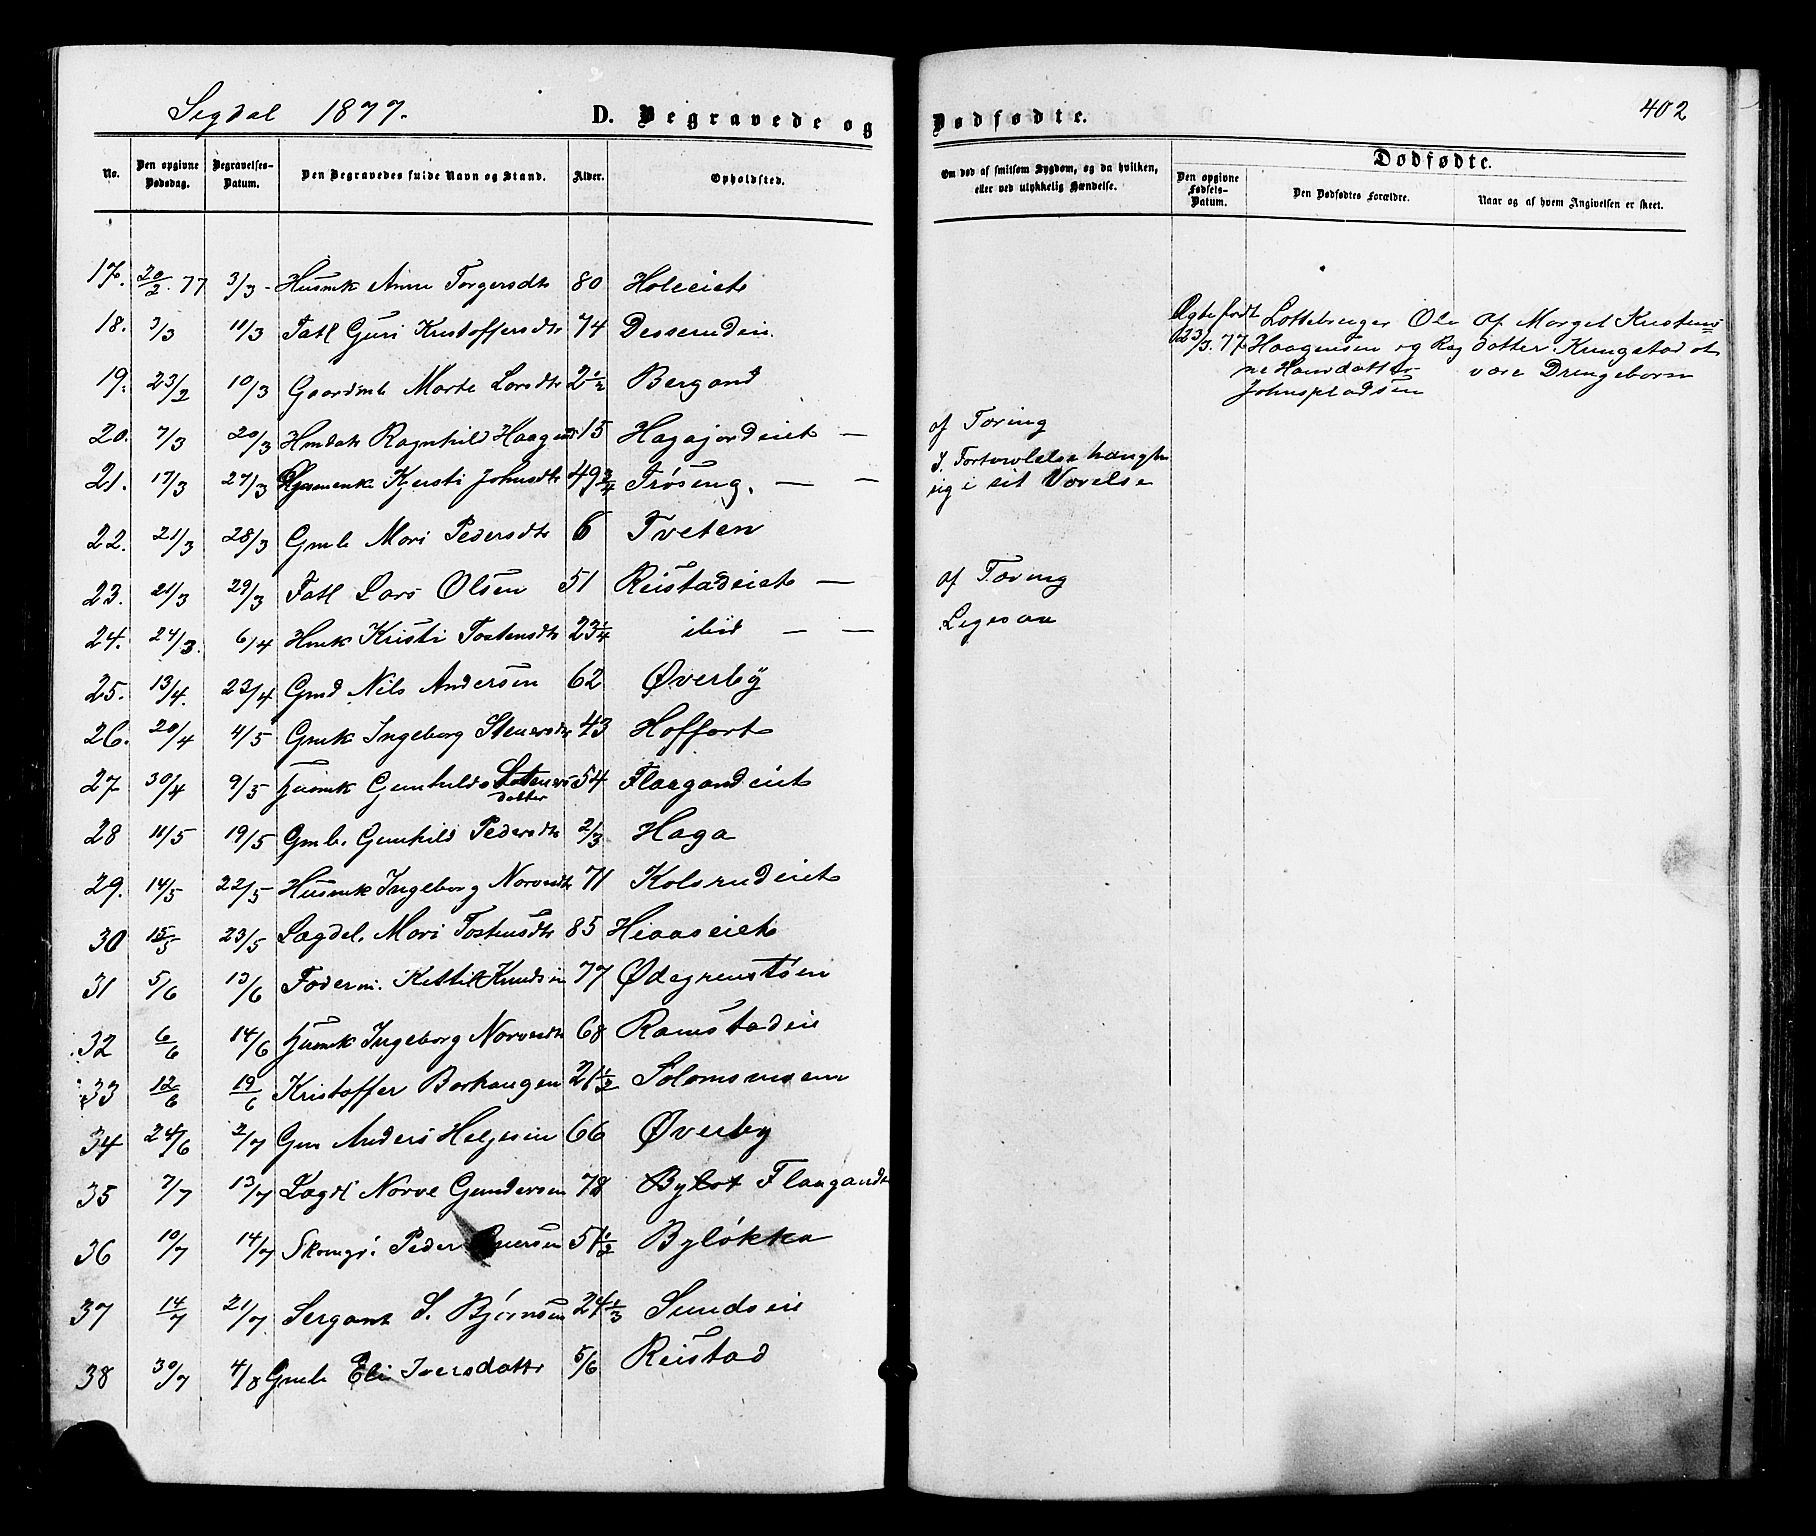 Sigdal 1877.
D. Begravede og Dødfødte.
402
No.
Den opgivne Dødsdag.
Begravelses-Datum.
Den Begravedes fulde Navn og Stand.
Alder.
Opholdsted.
Om død af smitsom Sygdom, og da hvilken, eller ved ulykkelig Hændelse.
Dødfødte.
Den opgivne Fødsels-Datum.
Den Dødfødtes Forældre.
Naar og af hvem Angivelsen er skeet.
17. 20/2 77 3/3 Husmk Anne Torgersdtr 80 Holeeiet
18. 3/3 11/3 Fatl Guri Kristoffersdtr 74 Desserudeie
19. 23/2 10/3 Gaardmb Marte Larsdtr 2 1/2 Bergand
20. 7/3 20/3 Hmdatr Ragnhild Haagensd 15 Hagajordeiet — af Tæring
21. 17/3 27/3 Kjersti Johnsdtr 49 3/4 Trøseng. — — I Fortvivlelse hængte
sig i sit Værelse
22. 21/3 28/3 Gmb Mari Pedersdtr 6 Tveten
23. 21/3 29/3 Fatl Lars Olsen 51 Reistadeiet — af Tæring
24. 24/3. 6/4 Hmk Kristi Tostensdtr 23 1/4 ibid — — Ligesaa
25. 13/4. 23/4 Gmd Nils Andersen 62 Øverby
26. 20/4 4/5 Gmk Ingeborg Stenersdtr 43 Hoffart
27 30/4 9/5 Husmk Gunhild Steners
datter 54 Flaagandeiet
28 11/5 19/5 Gmb. Gunhild Pedersdtr 2/3 Haga
29. 14/5 22/5 Husmk Ingeborg Narvesdtr 71 Kolsrudeiet
30 15/5 23/5 Lægdel. Mari Tostensdtr 85 Hiaaseiet
31 5/6 13/6 Føderm. Kittil Knudsen 77 Ødegrenstøen
32 6/6 14/6 Husmk Ingeborg Narvesdtr 68 Ramstadeie
33 12/6 19/6 Kristoffer Borhaugen 21 1/2 Solomsmoen
34 24/6 2/7 Gm Anders Helgesen 66 Øverby
35 7/7 13/7 Lægdl Narve Gundersen 78 Flaagande
36 10/7 14/7 Peder 51 1/2 Byløkka
37 14/7 21/7 Sergant S. Bjørnsen 24 1/3 Sundseie
38 30/7 4/8 Gmb Eli Iversdattr 5/6 Reistad
Ægtefødt
23/3. 77
Løttebruger Ole
Haagensen og Rag
ne Hansdatter
Johnspladsen
af Marget Kristens
datter Kringstad at
være Drengebarn